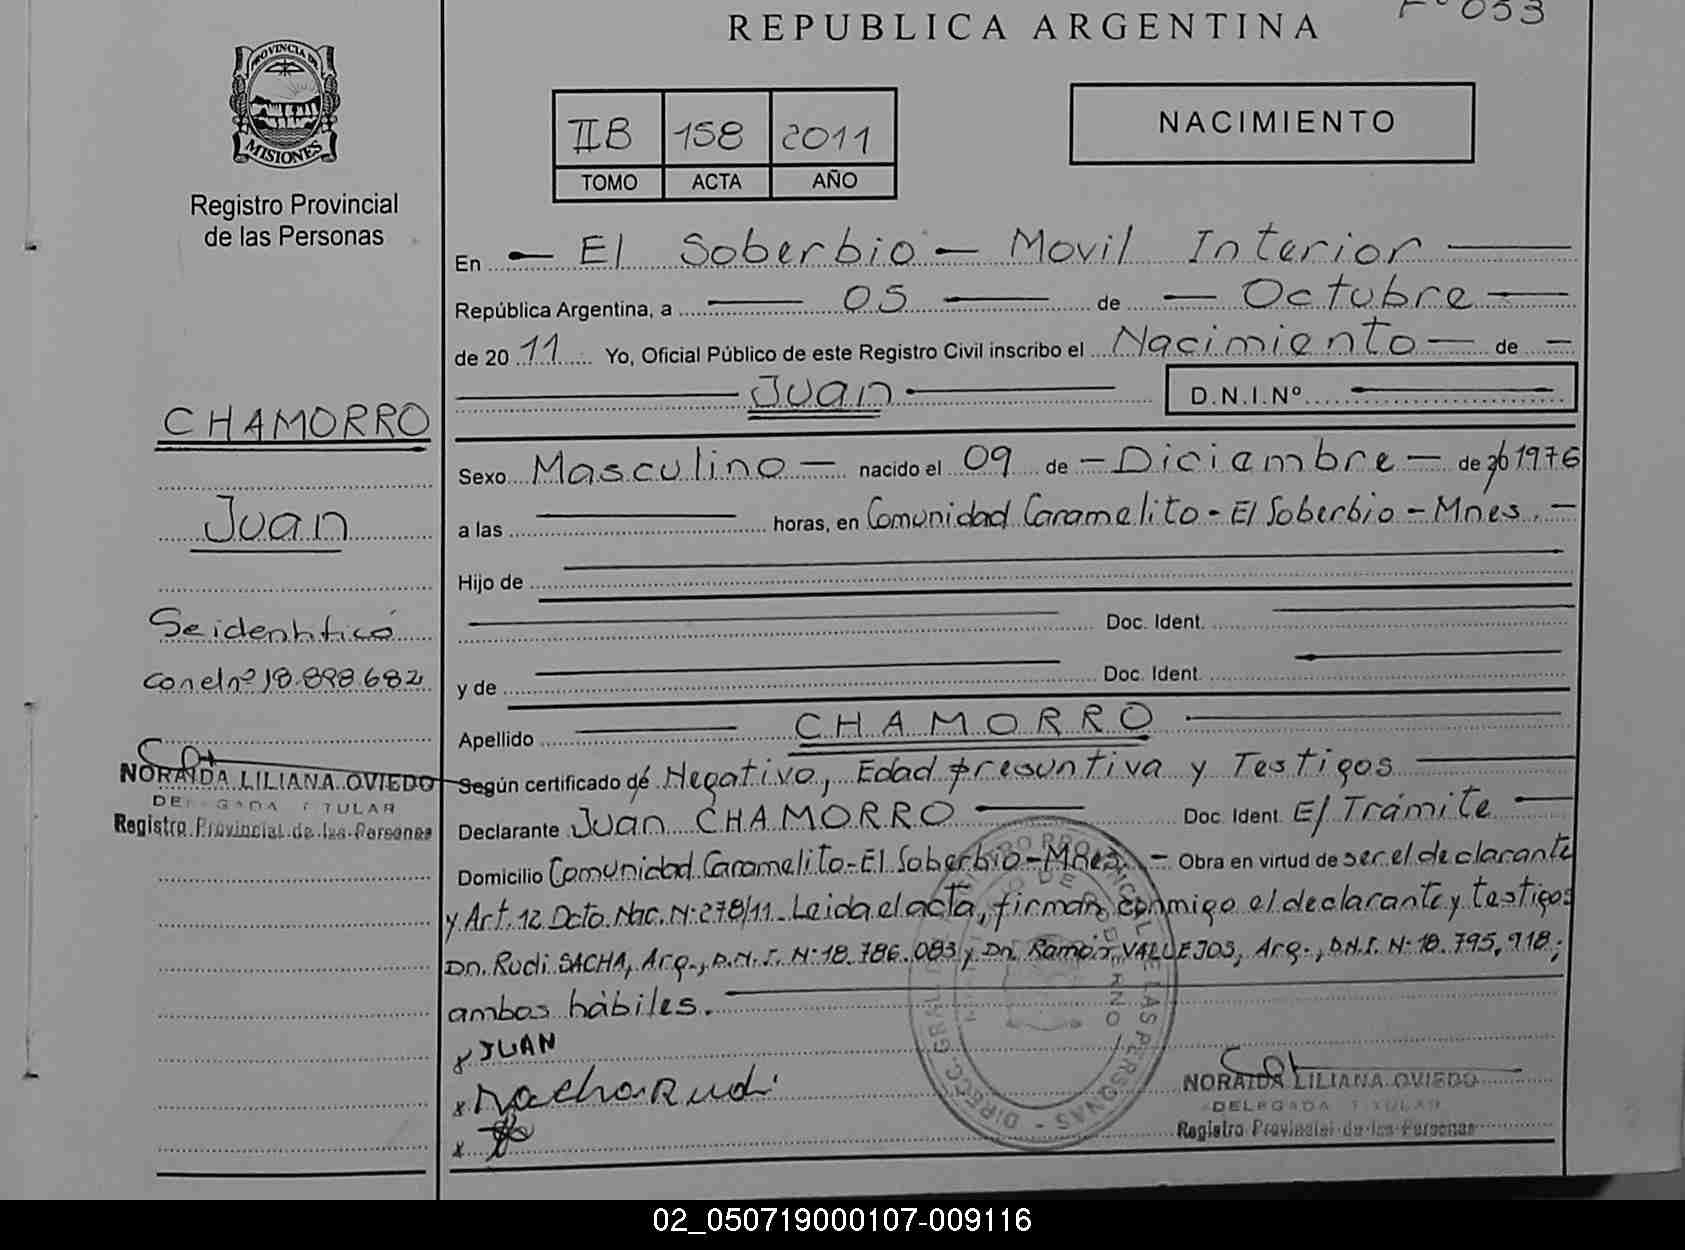 REPUBLICA ARGENTINA
Fº 053
PROVINCIA DE
MISIONES
Registro Provincial
de las Personas
IIB 158 2011
TOMO ACTA AÑO
NACIMIENTO
En — El Soberbio — Movil Interior —
República Argentina, a — 05 — de — Octubre —
de 20 11 Yo, Oficial Público de este Registro Civil inscribo el Nacimiento — de —
— Juan — D.N.I.Nº —
CHAMORRO
Juan
Se identificó
con el nº 18.898.682
NORAIDA LILIANA OVIEDO
DELEGADA TITULAR
Registro Provincial de las Personas
Sexo Masculino — nacido el 09 de — Diciembre — de 1976
a las — horas, en Comunidad Caramelito - El Soberbio - Mnes. —
Hijo de —
— Doc. Ident. —
y de — Doc. Ident. —
Apellido — CHAMORRO —
Según certificado de Negativo, Edad presuntiva y Testigos —
Declarante Juan CHAMORRO — Doc. Ident. E/ Trámite —
Domicilio Comunidad Caramelito - El Soberbio - Mnes. — Obra en virtud de ser el declarante
y Art. 12 Dcto. Nac. Nº 278/11. Leida el acta, firman conmigo el declarante y testigos
Dn. Rudi SACHA, Arg., D.N.I. Nº 18.786.083 y Dn. Ramón VALLEJOS, Arg., D.N.I. Nº 18.795.918;
ambos hàbiles. —
x JUAN
x Rudi
x
DIRECC. GRAL. DE LAS PERSONAS
NORAIDA LILIANA OVIEDO
DELEGADA TITULAR
Registro Provincial de las Personas
02_050719000107-009116